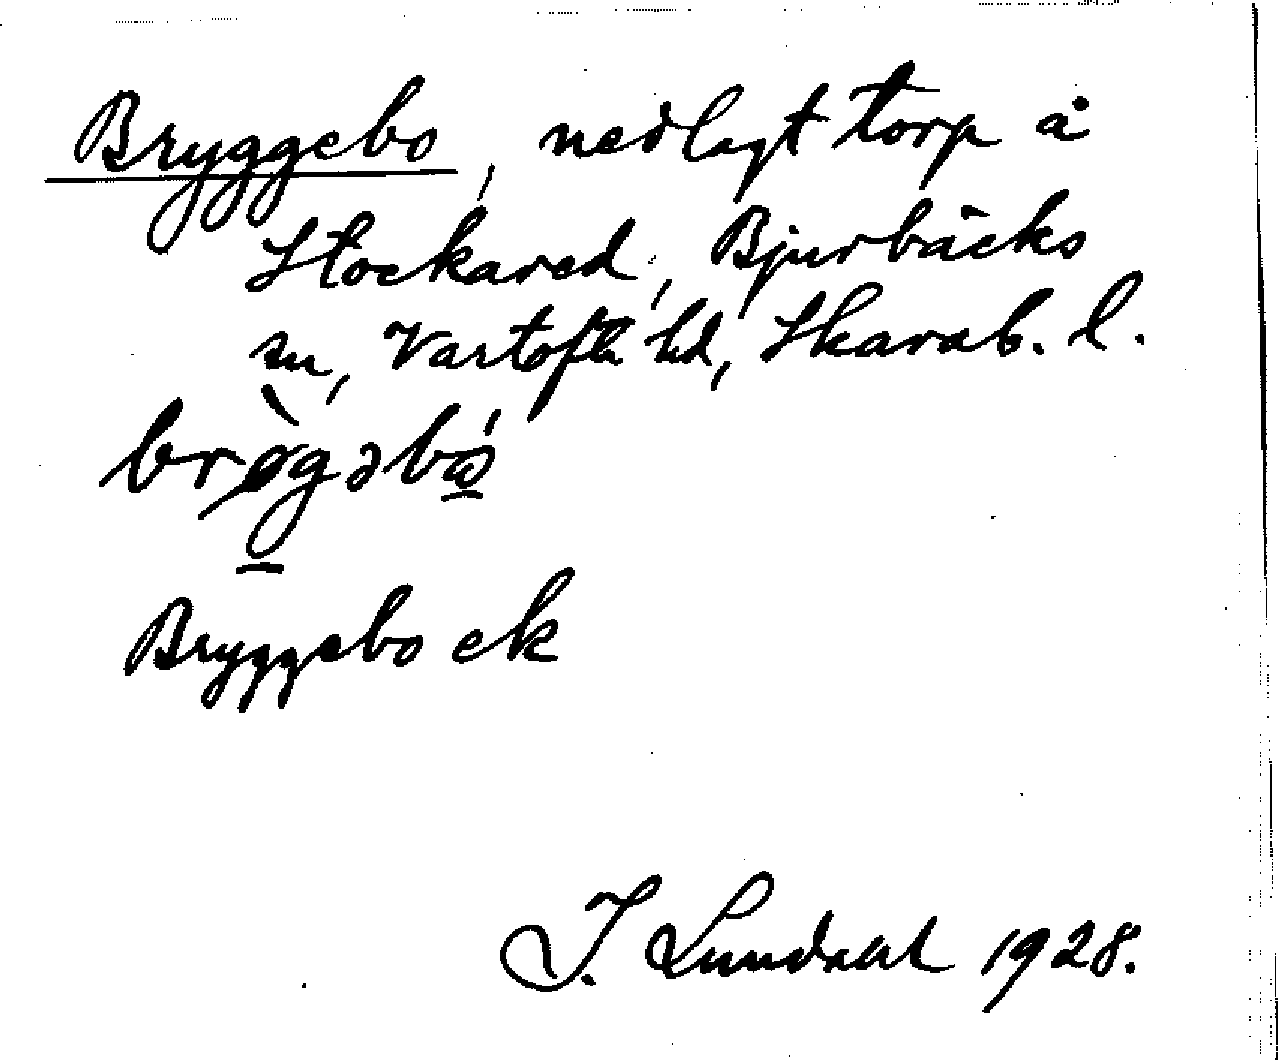 Bryggebo, nedlagt torp å
Stockared, Bjurbäcks
sn, Vartofta hd, Skarab. l.
brø̀gəbω
Bryggebo ek
I. Lundahl 1928.